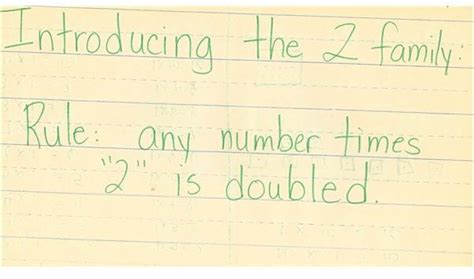 Introducing the 2 family:
Rule: any number times
"2" is doubled.